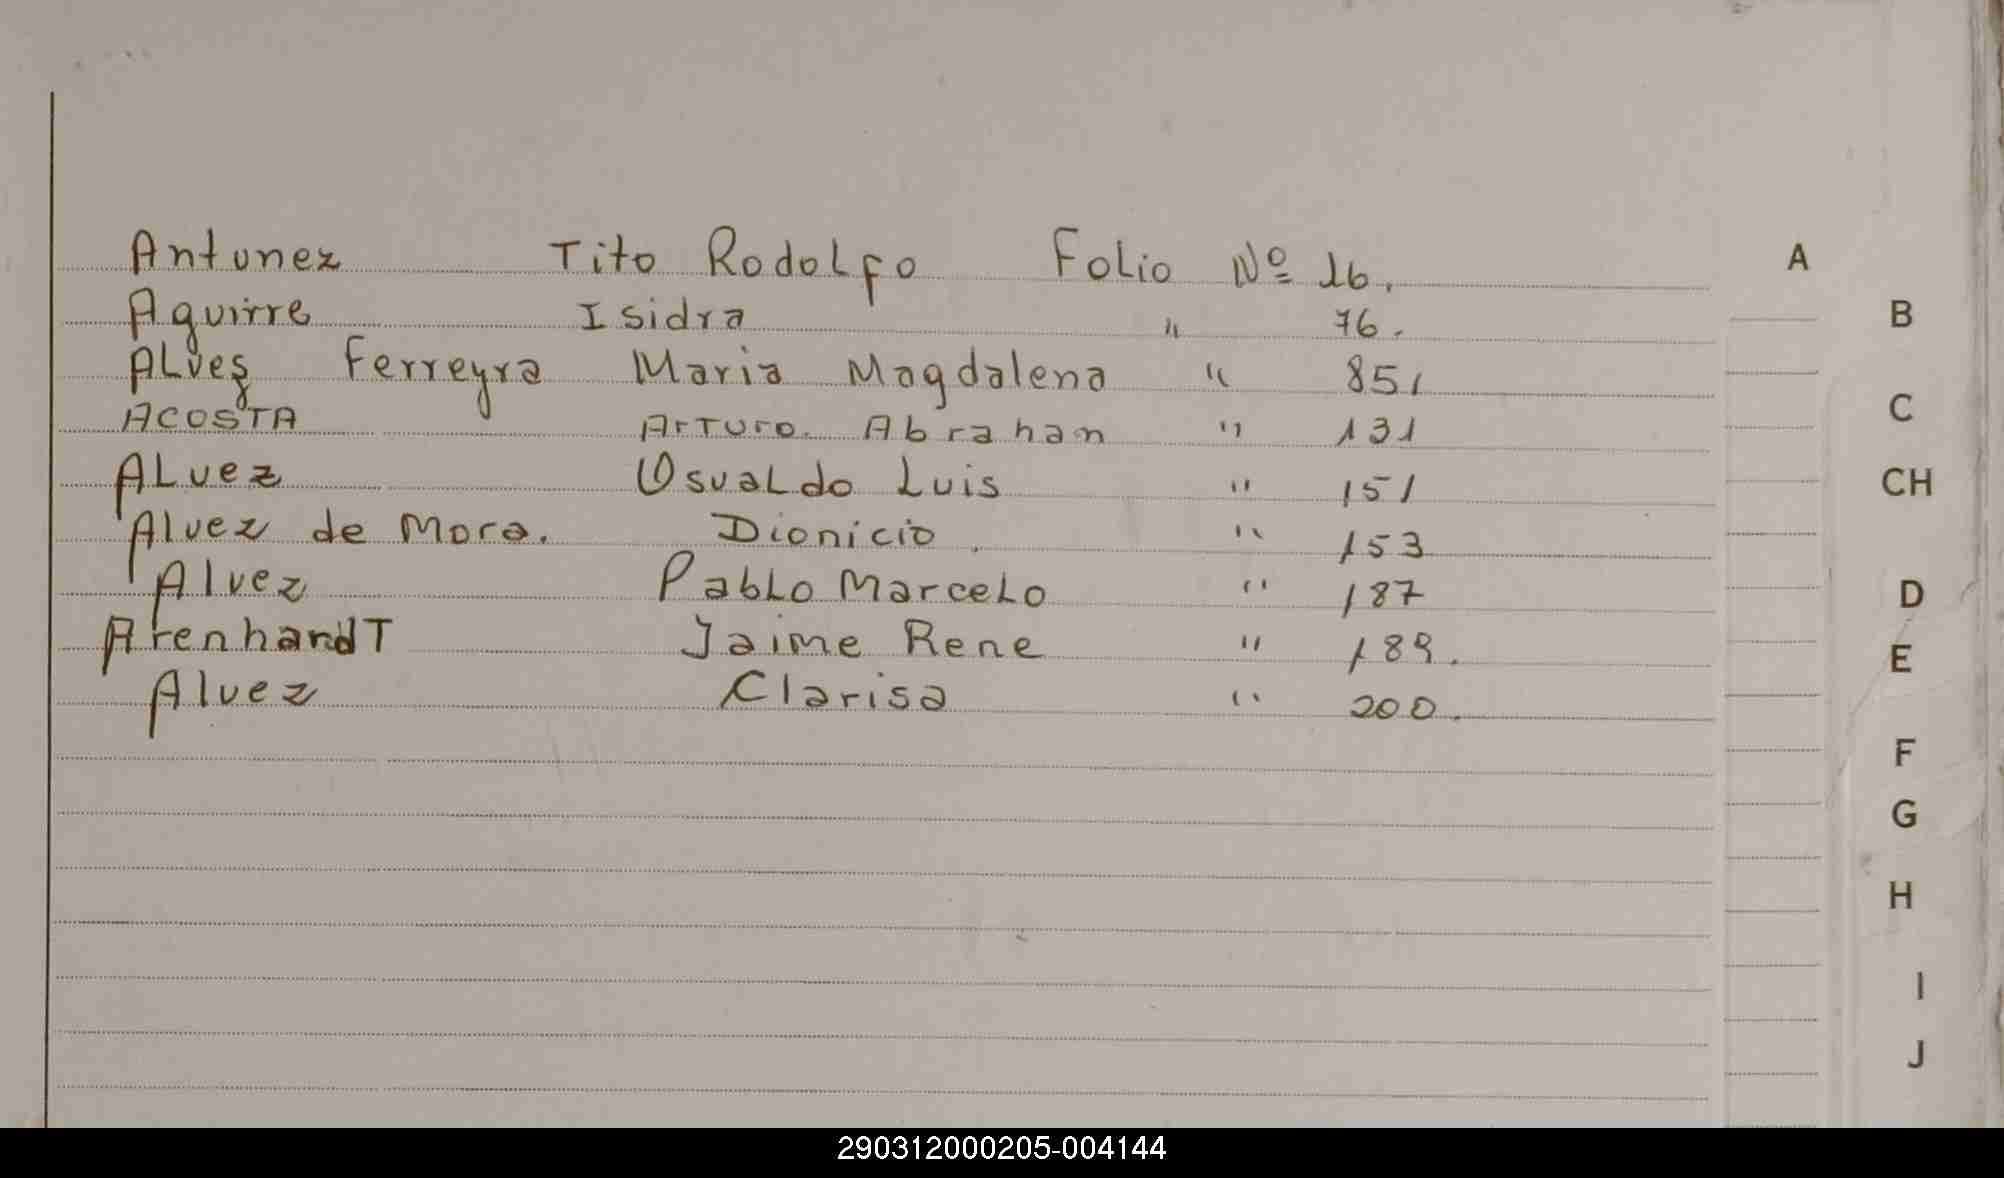 Antunez Tito Rodolfo Folio Nº 16.
Aguirre Isidra " 76.
Alves Ferreyra Maria Magdalena " 85,
Acosta Arturo. Abrahan " 131
Alvez Osvaldo Luis " 151
Alvez de Mora. Dionicio. " 153
Alvez Pablo Marcelo " 187
ArenhandT Jaime Rene " 189.
Alvez Clarisa " 200.
A
B
C
CH
D
E
F
G
H
I
J
290312000205-004144